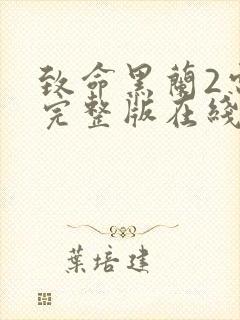 致命黑蘭2
完整版在綫
葉培建